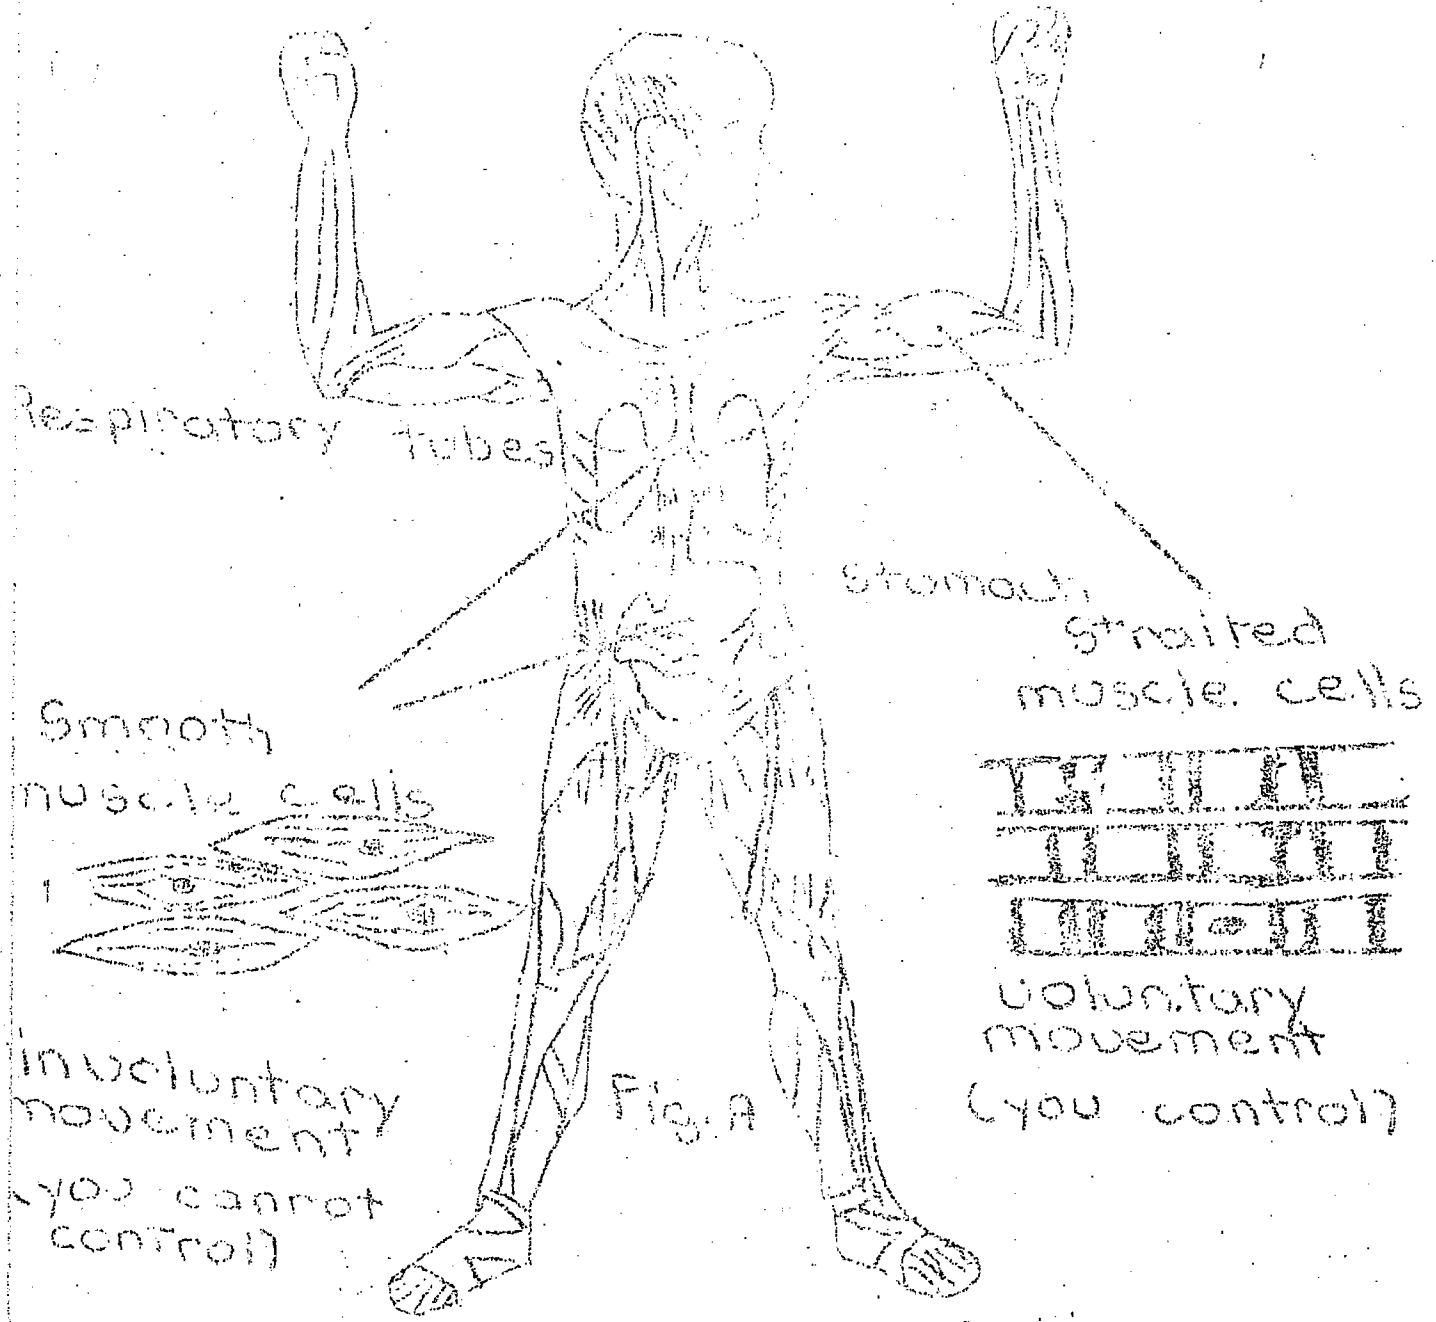 Respiratory tubes
Stomach
Straited
muscle cells
Smooth
muscle cells
voluntary
movement
(you control)
involuntary
movement
(you cannot
control)
Fig. A